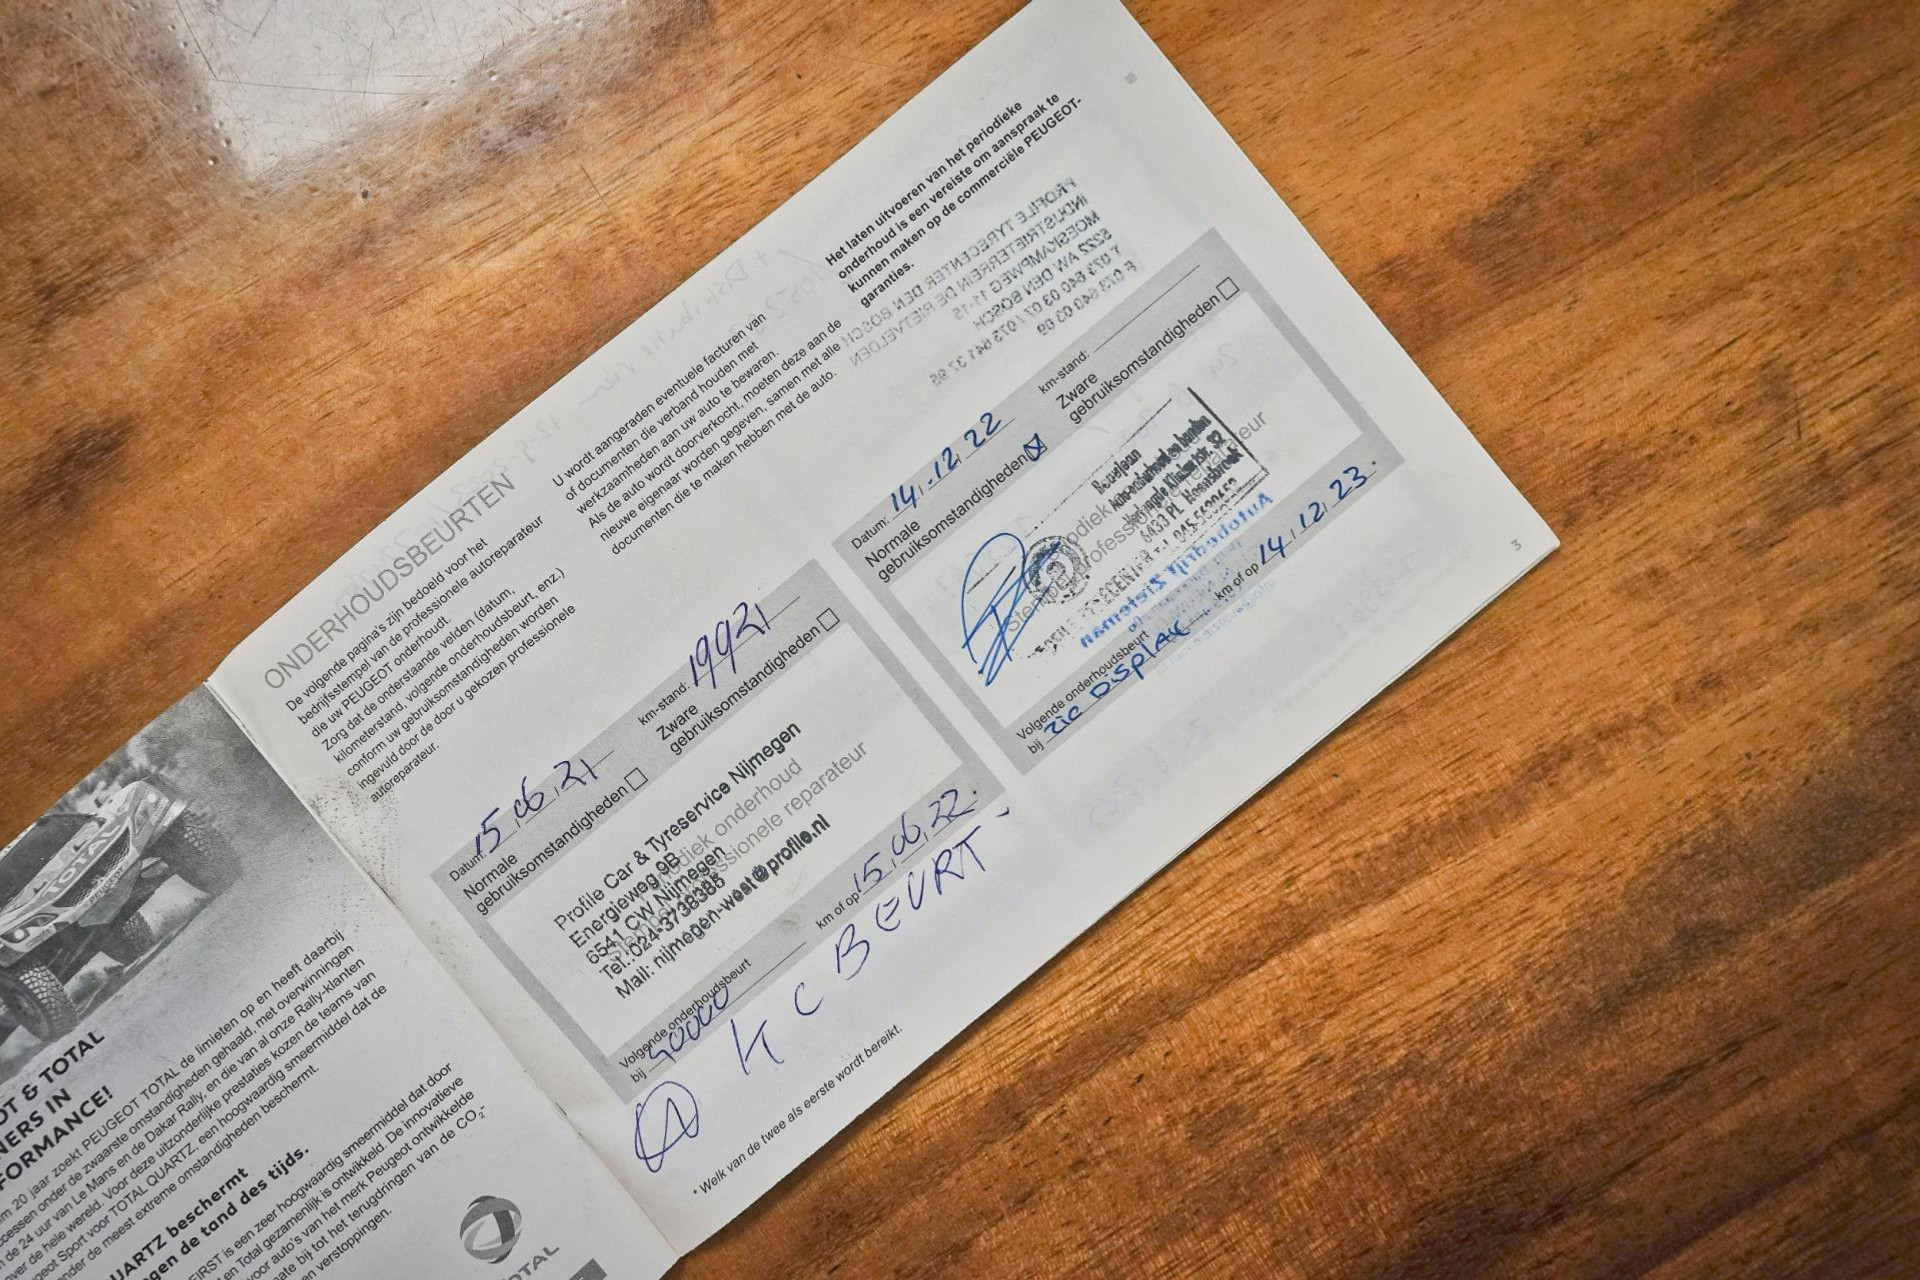 OT & TOTAL
NERS IN
FORMANCE!
m 20 jaar zoekt PEUGEOT TOTAL de limieten op en heeft daarbij
cessen onder de zwaarste omstandigheden gehaald, met overwinningen
n de 24 uur van Le Mans en de Dakar Rally, en die van al onze Rally-klanten
over de hele wereld. Voor deze uitzonderlijke prestaties kozen de teams van
geot Sport voor TOTAL QUARTZ, een hoogwaardig smeermiddel dat de
nder de meest extreme omstandigheden beschermt.
UARTZ beschermt
gen de tand des tijds.
FIRST is een zeer hoogwaardig smeermiddel dat door
en Total gezamenlijk is ontwikkeld. De innovatieve
voor auto's van het merk Peugeot ontwikkelde
mate bij tot het terugdringen van de CO2-
n verstoppingen.
TOTAL
TOTAL
ONDERHOUDSBEURTEN
De volgende pagina's zijn bedoeld voor het
bedrijfsstempel van de professionele autoreparateur
die uw PEUGEOT onderhoudt.
Zorg dat de onderstaande velden (datum,
kilometerstand, volgende onderhoudsbeurt, enz.)
conform uw gebruiksomstandigheden worden
ingevuld door de door u gekozen professionele
autoreparateur.
U wordt aangeraden eventuele facturen van
of documenten die verband houden met
werkzaamheden aan uw auto te bewaren.
Als de auto wordt doorverkocht, moeten deze aan de
nieuwe eigenaar worden gegeven, samen met alle
documenten die te maken hebben met de auto.
Het laten uitvoeren van het periodieke
onderhoud is een vereiste om aanspraak te
kunnen maken op de commerciële PEUGEOT-
garanties.
Datum: 15.06.21 km-stand: 19921
Normale gebruiksomstandigheden
Zware gebruiksomstandigheden
Profile Car & Tyreservice Nijmegen
Energieweg 9B
6541 CW Nijmegen
Tel.:024-3738385
Mail: nijmegen-west@profile.nl
Volgende onderhoudsbeurt
bij 40000 km of op 15.06.22.
A KC BEURT
* Welk van de twee als eerste wordt bereikt.
Datum: 14.12.22 km-stand:
Normale gebruiksomstandigheden
Zware gebruiksomstandigheden
6433 PL Hoensbroek
Volgende onderhoudsbeurt
bij zie DISPLAY km of op 14.12.23.
3